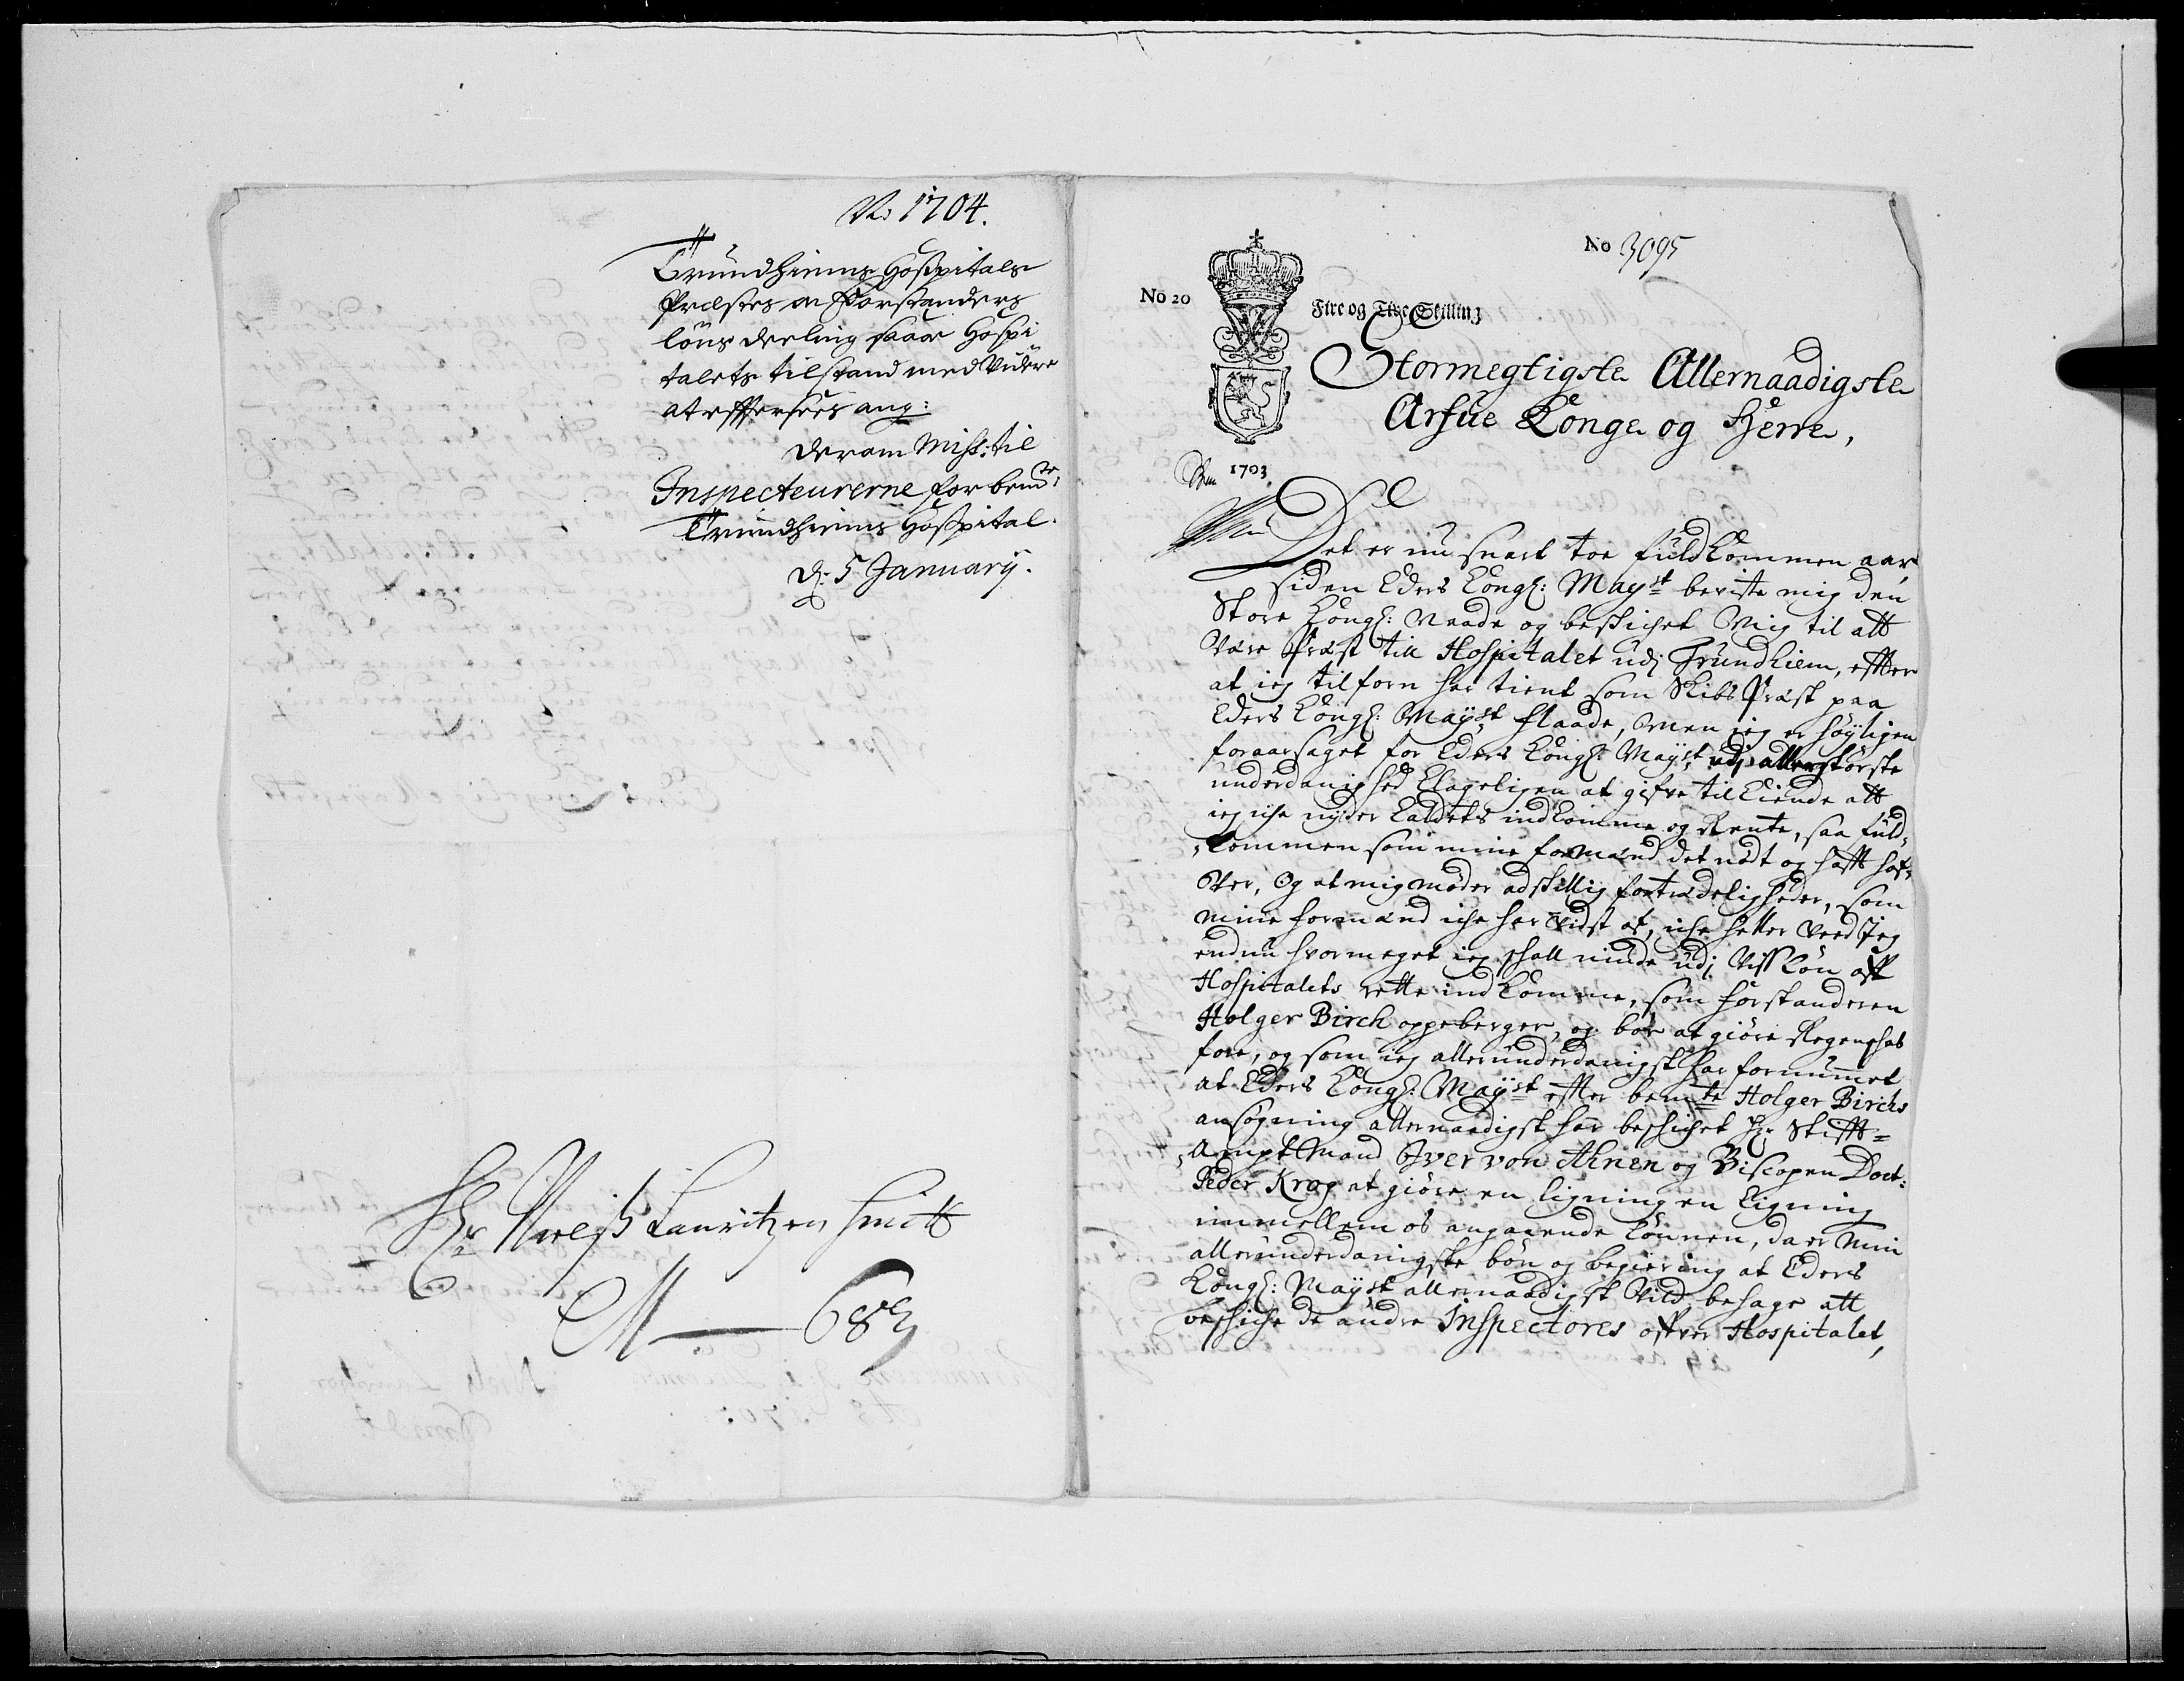 No: 1704.
Trundhiems Hospitals
Præstes og Forstanders
löns deeling saaoc Hospi
talets tilstand med videre
at efftersees ang:
derom Miss: til
Inspecteurerne for bemte
Trundhiems Hospital.
d: 5 January.
Hr Niels Lauritzen Smitt
M — 689
No 3095
No 20
Fire og Tive Skilling
Stormegtigste Allernaadigste
Arfue Konge og Herre,
1703
Det er nu snart toe fuldkommen aar
siden Eders Kongl: Mayst beviste mig den
Store Kongl: Naade og beskichet Mig til att
Være Præst till Hospitalet udj Trundhiem, effter
at ieg tilforn har tient som Skibs Præst paa
Eders Kongl: Mayst Flaade, Men ieg er höyligen
foraarsaget for Eders Kongl: Mayst udj allerstörste
underdanighed klageligen at gifve tilkiende att
ieg iche nyder Kaldets indkomme og Rente, saa fuld-
kommen som mine formænd det nödt og hafft haf-
ver, Og at mig möder adskillig fortrædeligheder, som
mine formænd iche har vidst af, iche heller veed Jeg
endnu hvormeget ieg skall niude udj Viss Lön aff
Hospitalets rette indkomme, som forstanderen
Holger Birch oppeberger, og bör at giöre Regenskab
fore, og som ieg allerunderdanigst har fornummet
at Eders Kongl: Mayst effter bemte Holger Birchs
ansögning allernaadigst har beskichet Hr Stifft-
Ampt Mand Iver von Ahnen og Biscopen Doct:
Peder Krog at giöre en ligning en ligning
immellem os angaaende Lönnen, da er min
allerunderdanigste bön og begiering at Eders
Kongl: Mayst allernaadigst Vild behage att
beskiche de andre Inspectores ofver Hospitalet,